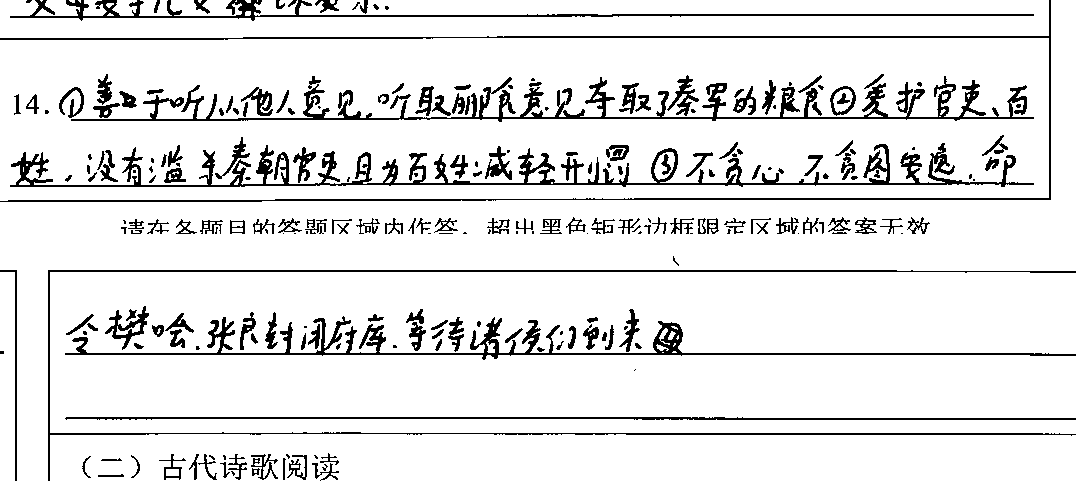 14. ①善于听从他人意见,听取郦食意见夺取了秦军的粮食②爱护官吏、百
姓,没有滥杀秦朝官吏且为百姓减轻刑罚 ③不贪心 不贪图安逸,命
请在各题目的答题区域内作答,超出黑色矩形边框限定区域的答案无效
令樊哙、张良封闭府库,等待诸侯们到来
(二)古代诗歌阅读